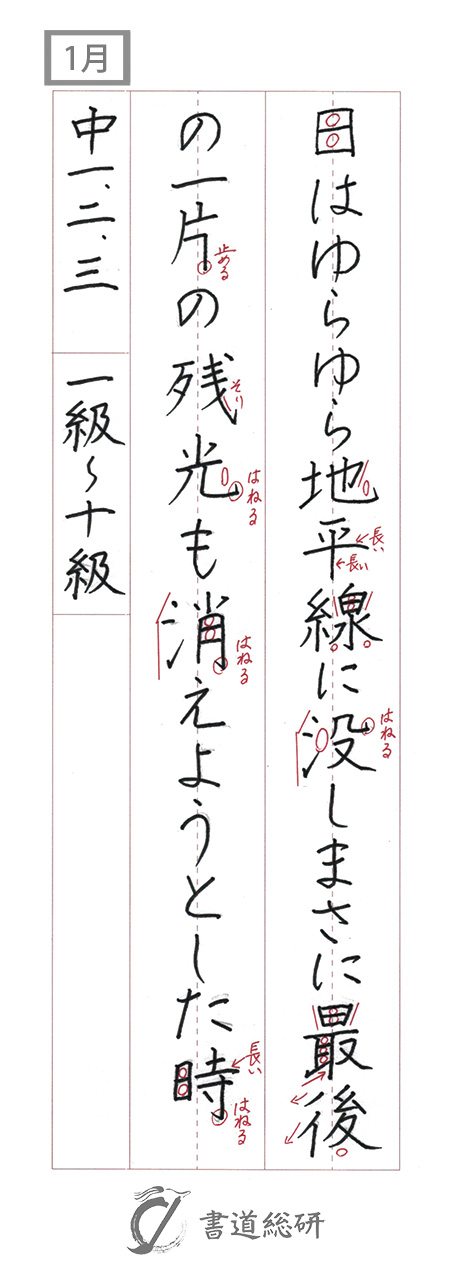 1月
日はゆらゆら地平線に没しまさに最後
の一片の残光も消えようとした時
中一、二、三
一級～十級
長い
長い
はねる
止める
そり
はねる
はねる
長い
はねる
書道総研